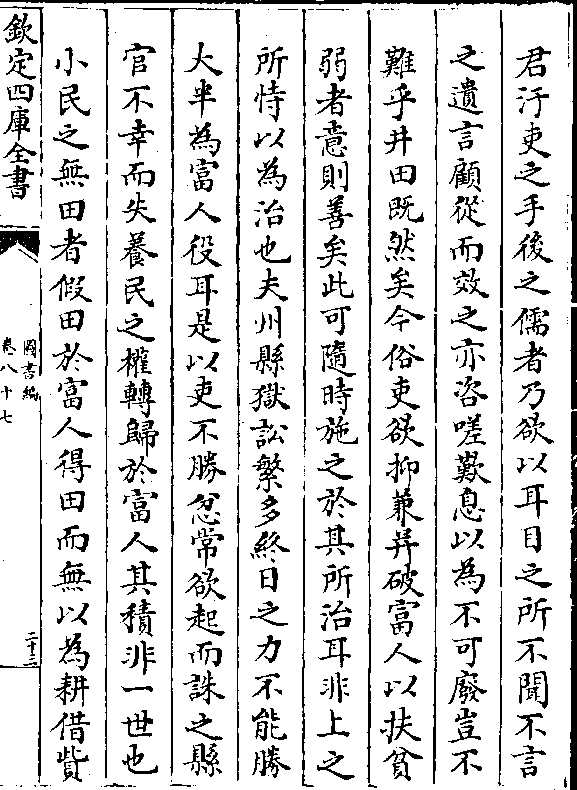 君汙吏之手後之儒者乃欲以耳目之所不聞不言
之遺言顧從而效之亦咨嗟歎息以為不可廢豈不
難乎井田既然矣今俗吏欲抑兼并破富人以扶貧
弱者意則善矣此可隨時施之於其所治耳非上之
所恃以為治也夫州縣獄訟繁多終日之力不能勝
大半為富人役耳是以吏不勝忿常欲起而誅之縣
官不幸而失養民之權轉歸於富人其積非一世也
小民之無田者假田於富人得田而無以為耕借貲
欽定四庫全書
圖書編
卷八十七
二十三